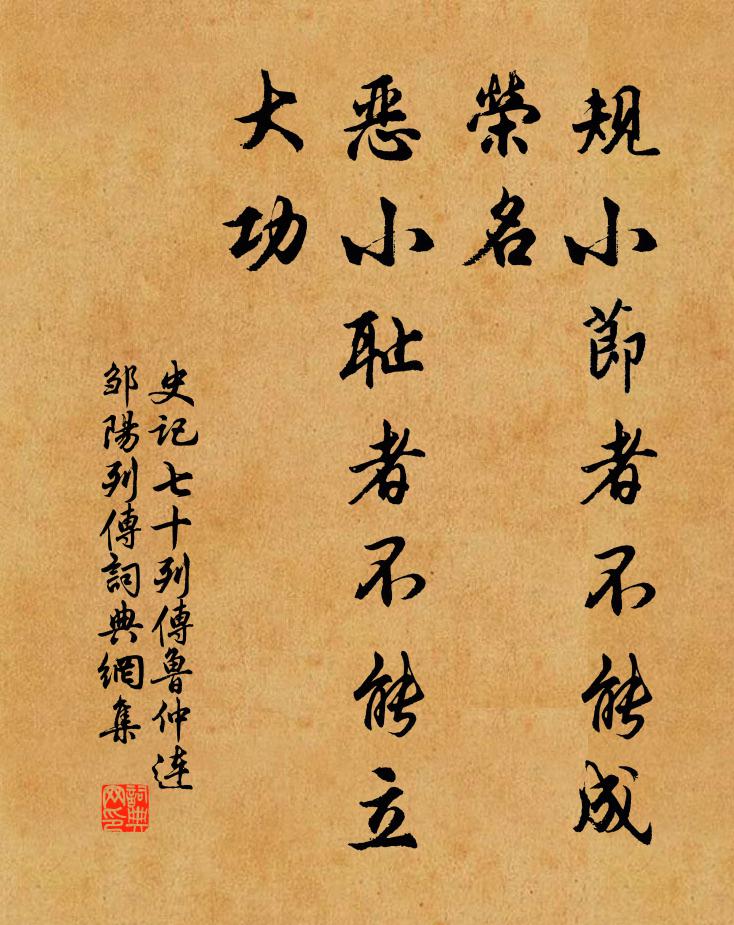 規小節者不能成
榮名
惡小耻者不能立
大功
史記七十列傳魯仲連
鄒陽列傳詞典網集
詞典网印